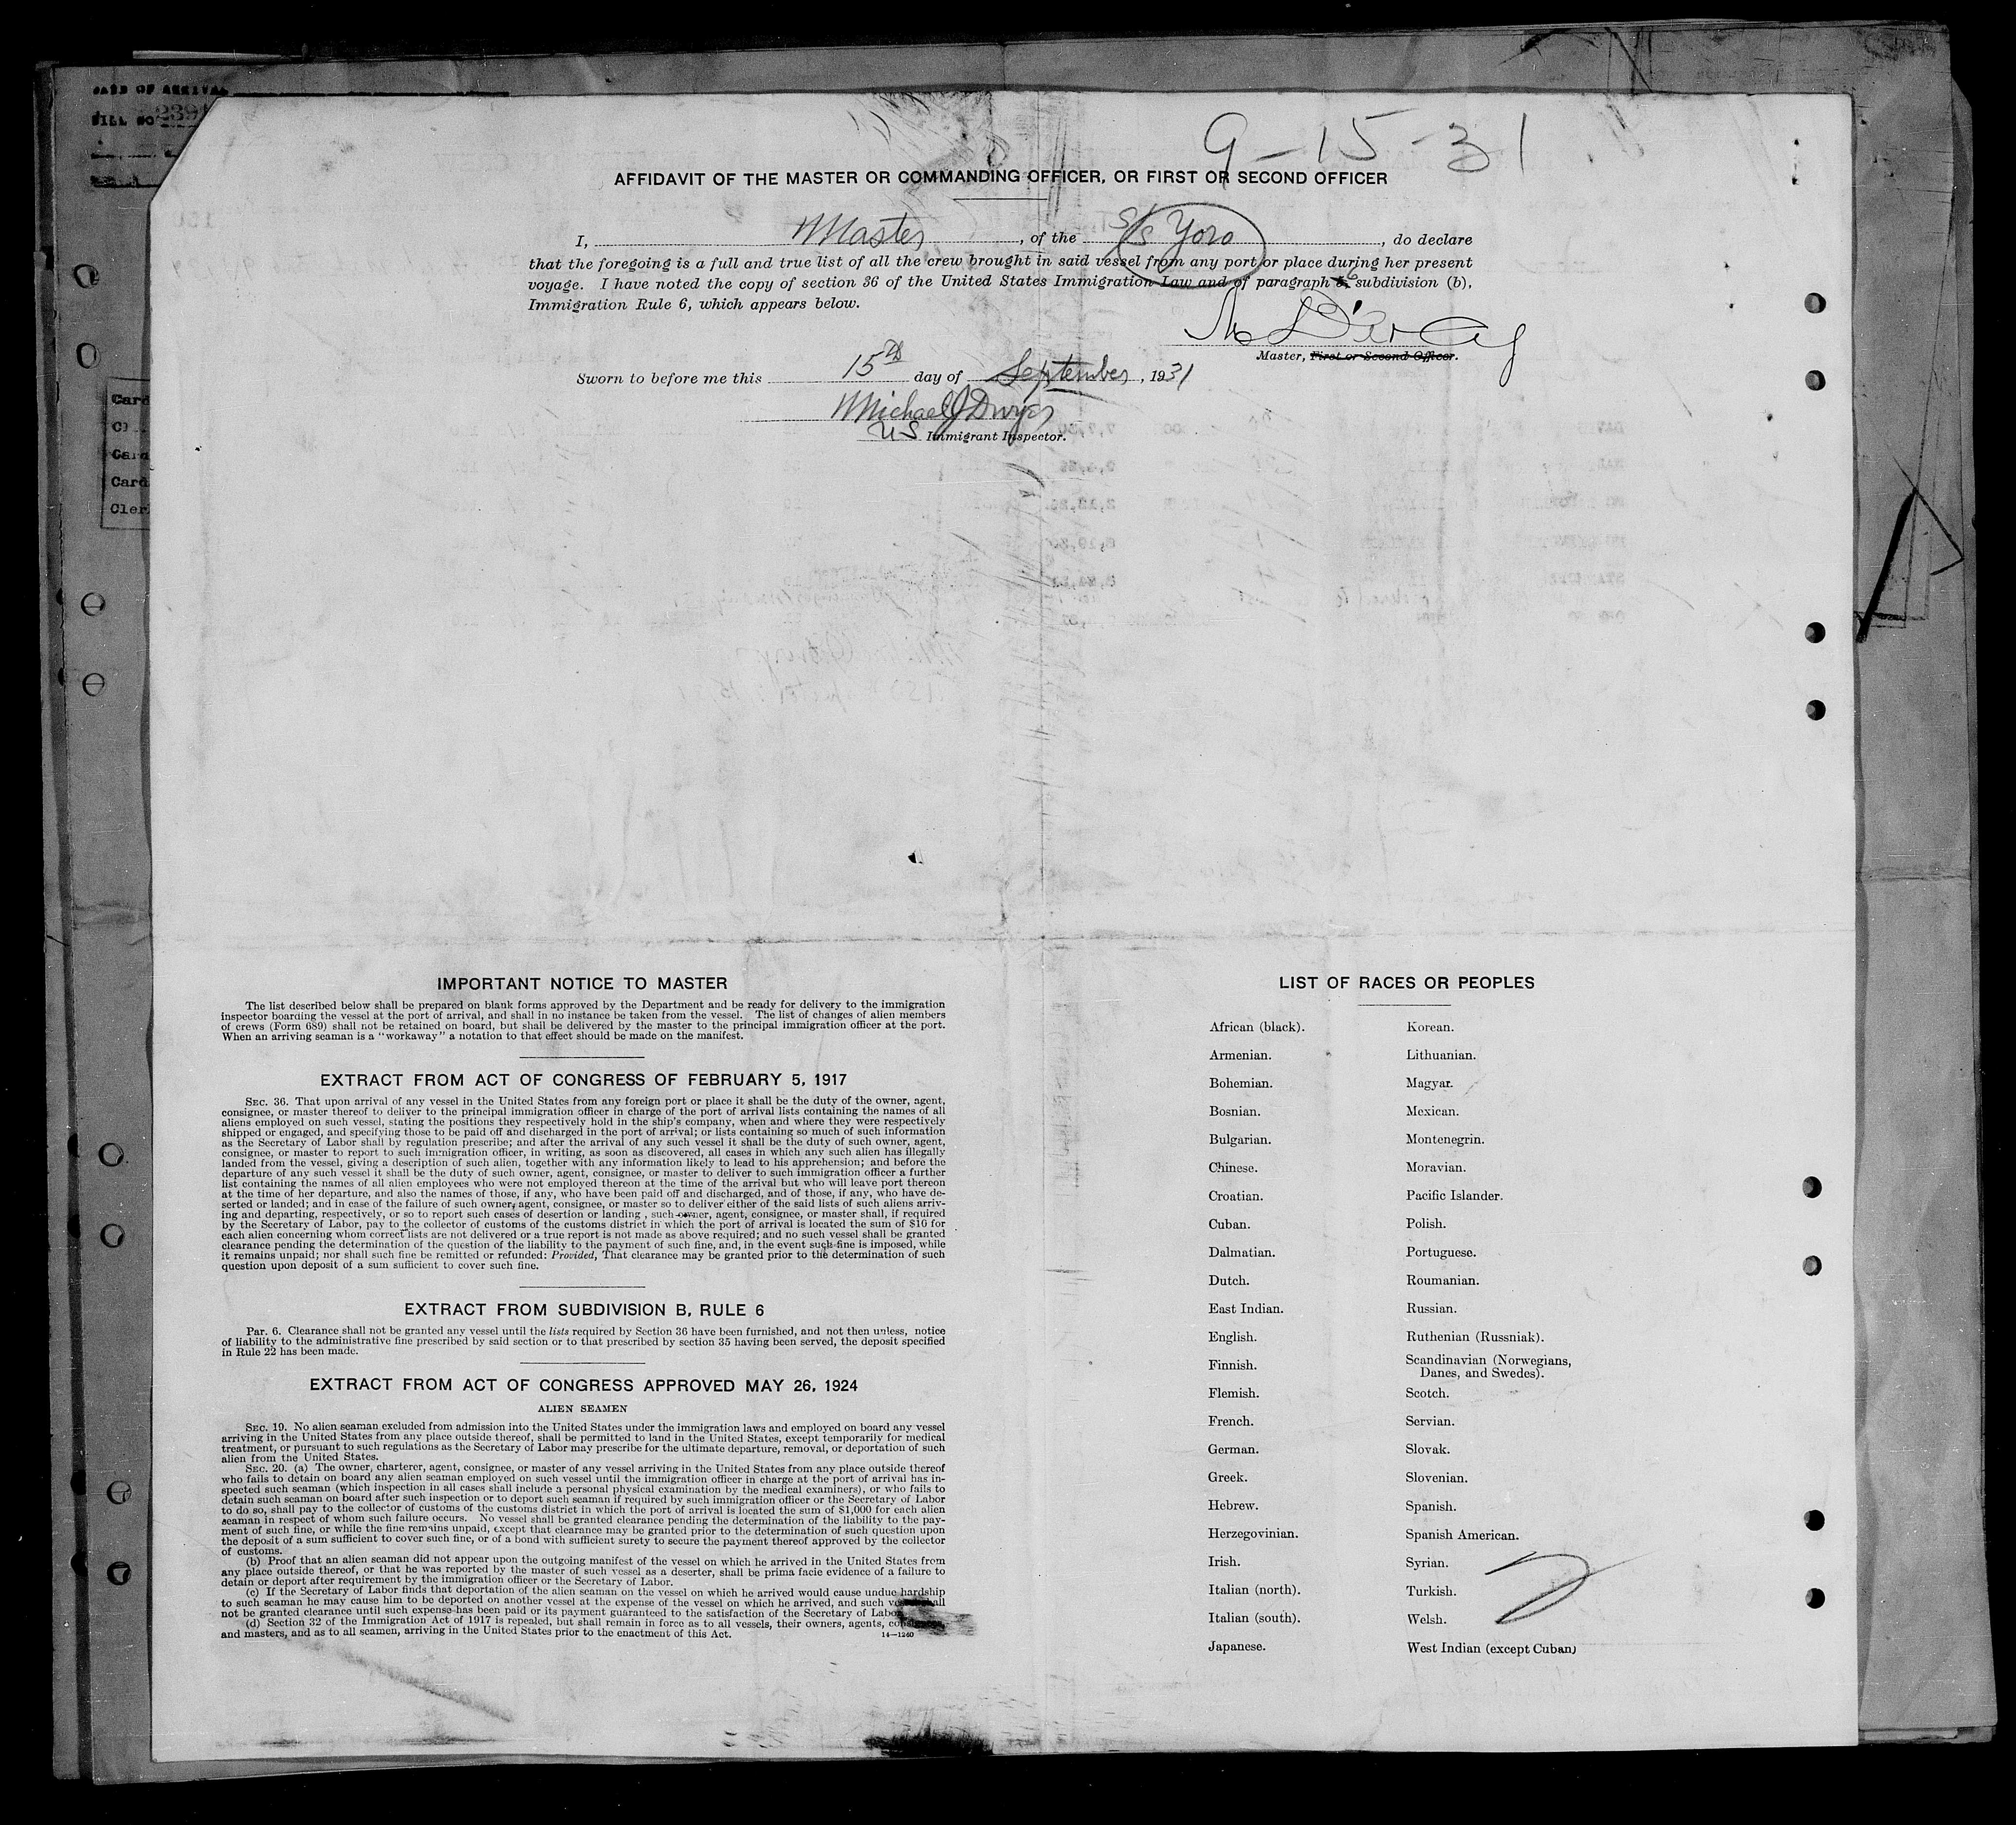 DATE OF ARRIVAL
BILL NO 239
9-15-31
AFFIDAVIT OF THE MASTER OR COMMANDING OFFICER, OR FIRST OR SECOND OFFICER
I, Master, of the S/S Yoro, do declare
that the foregoing is a full and true list of all the crew brought in said vessel from any port or place during her present
voyage. I have noted the copy of section 36 of the United States Immigration Law and of paragraph 6 subdivision (b),
Immigration Rule 6, which appears below.
Master, First or Second Officer.
Sworn to before me this 15th day of September, 1931
Michael J Dwyer
US Immigrant Inspector.
Card
Card
Card
Cler
IMPORTANT NOTICE TO MASTER
The list described below shall be prepared on blank forms approved by the Department and be ready for delivery to the immigration
inspector boarding the vessel at the port of arrival, and shall in no instance be taken from the vessel. The list of changes of alien members
of crews (Form 689) shall not be retained on board, but shall be delivered by the master to the principal immigration officer at the port.
When an arriving seaman is a "workaway" a notation to that effect should be made on the manifest.
EXTRACT FROM ACT OF CONGRESS OF FEBRUARY 5, 1917
SEC. 36. That upon arrival of any vessel in the United States from any foreign port or place it shall be the duty of the owner, agent,
consignee, or master thereof to deliver to the principal immigration officer in charge of the port of arrival lists containing the names of all
aliens employed on such vessel, stating the positions they respectively hold in the ship's company, when and where they were respectively
shipped or engaged, and specifying those to be paid off and discharged in the port of arrival; or lists containing so much of such information
as the Secretary of Labor shall by regulation prescribe; and after the arrival of any such vessel it shall be the duty of such owner, agent,
consignee, or master to report to such immigration officer, in writing, as soon as discovered, all cases in which any such alien has illegally
landed from the vessel, giving a description of such alien, together with any information likely to lead to his apprehension; and before the
departure of any such vessel it shall be the duty of such owner, agent, consignee, or master to deliver to such immigration officer a further
list containing the names of all alien employees who were not employed thereon at the time of the arrival but who will leave port thereon
at the time of her departure, and also the names of those, if any, who have been paid off and discharged, and of those, if any, who have de-
serted or landed; and in case of the failure of such owner, agent, consignee, or master so to deliver either of the said lists of such aliens arriv-
ing and departing, respectively, or so to report such cases of desertion or landing, such owner, agent, consignee, or master shall, if required
by the Secretary of Labor, pay to the collector of customs of the customs district in which the port of arrival is located the sum of $10 for
each alien concerning whom correct lists are not delivered or a true report is not made as above required; and no such vessel shall be granted
clearance pending the determination of the question of the liability to the payment of such fine, and, in the event such fine is imposed, while
it remains unpaid; nor shall such fine be remitted or refunded: Provided, That clearance may be granted prior to the determination of such
question upon deposit of a sum sufficient to cover such fine.
EXTRACT FROM SUBDIVISION B, RULE 6
Par. 6. Clearance shall not be granted any vessel until the lists required by Section 36 have been furnished, and not then unless, notice
of liability to the administrative fine prescribed by said section or to that prescribed by section 35 having been served, the deposit specified
in Rule 22 has been made.
EXTRACT FROM ACT OF CONGRESS APPROVED MAY 26, 1924
ALIEN SEAMEN
SEC. 19. No alien seaman excluded from admission into the United States under the immigration laws and employed on board any vessel
arriving in the United States from any place outside thereof, shall be permitted to land in the United States, except temporarily for medical
treatment, or pursuant to such regulations as the Secretary of Labor may prescribe for the ultimate departure, removal, or deportation of such
alien from the United States.
SEC. 20. (a) The owner, charterer, agent, consignee, or master of any vessel arriving in the United States from any place outside thereof
who fails to detain on board any alien seaman employed on such vessel until the immigration officer in charge at the port of arrival has in-
spected such seaman (which inspection in all cases shall include a personal physical examination by the medical examiners), or who fails to
detain such seaman on board after such inspection or to deport such seaman if required by such immigration officer or the Secretary of Labor
to do so, shall pay to the collector of customs of the customs district in which the port of arrival is located the sum of $1,000 for each alien
seaman in respect of whom such failure occurs. No vessel shall be granted clearance pending the determination of the liability to the pay-
ment of such fine, or while the fine remains unpaid, except that clearance may be granted prior to the determination of such question upon
the deposit of a sum sufficient to cover such fine, or of a bond with sufficient surety to secure the payment thereof approved by the collector
of customs.
(b) Proof that an alien seaman did not appear upon the outgoing manifest of the vessel on which he arrived in the United States from
any place outside thereof, or that he was reported by the master of such vessel as a deserter, shall be prima facie evidence of a failure to
detain or deport after requirement by the immigration officer or the Secretary of Labor.
(c) If the Secretary of Labor finds that deportation of the alien seaman on the vessel on which he arrived would cause undue hardship
to such seaman he may cause him to be deported on another vessel at the expense of the vessel on which he arrived, and such vessel shall
not be granted clearance until such expense has been paid or its payment guaranteed to the satisfaction of the Secretary of Labor.
(d) Section 32 of the Immigration Act of 1917 is repealed, but shall remain in force as to all vessels, their owners, agents, consignees,
and masters, and as to all seamen, arriving in the United States prior to the enactment of this Act.
14—1240
LIST OF RACES OR PEOPLES
African (black).
Armenian.
Bohemian.
Bosnian.
Bulgarian.
Chinese.
Croatian.
Cuban.
Dalmatian.
Dutch.
East Indian.
English.
Finnish.
Flemish.
French.
German.
Greek.
Hebrew.
Herzegovinian.
Irish.
Italian (north).
Italian (south).
Japanese.
Korean.
Lithuanian.
Magyar.
Mexican.
Montenegrin.
Moravian.
Pacific Islander.
Polish.
Portuguese.
Roumanian.
Russian.
Ruthenian (Russniak).
Scandinavian (Norwegians,
Danes, and Swedes).
Scotch.
Servian.
Slovak.
Slovenian.
Spanish.
Spanish American.
Syrian.
Turkish.
Welsh.
West Indian (except Cuban)